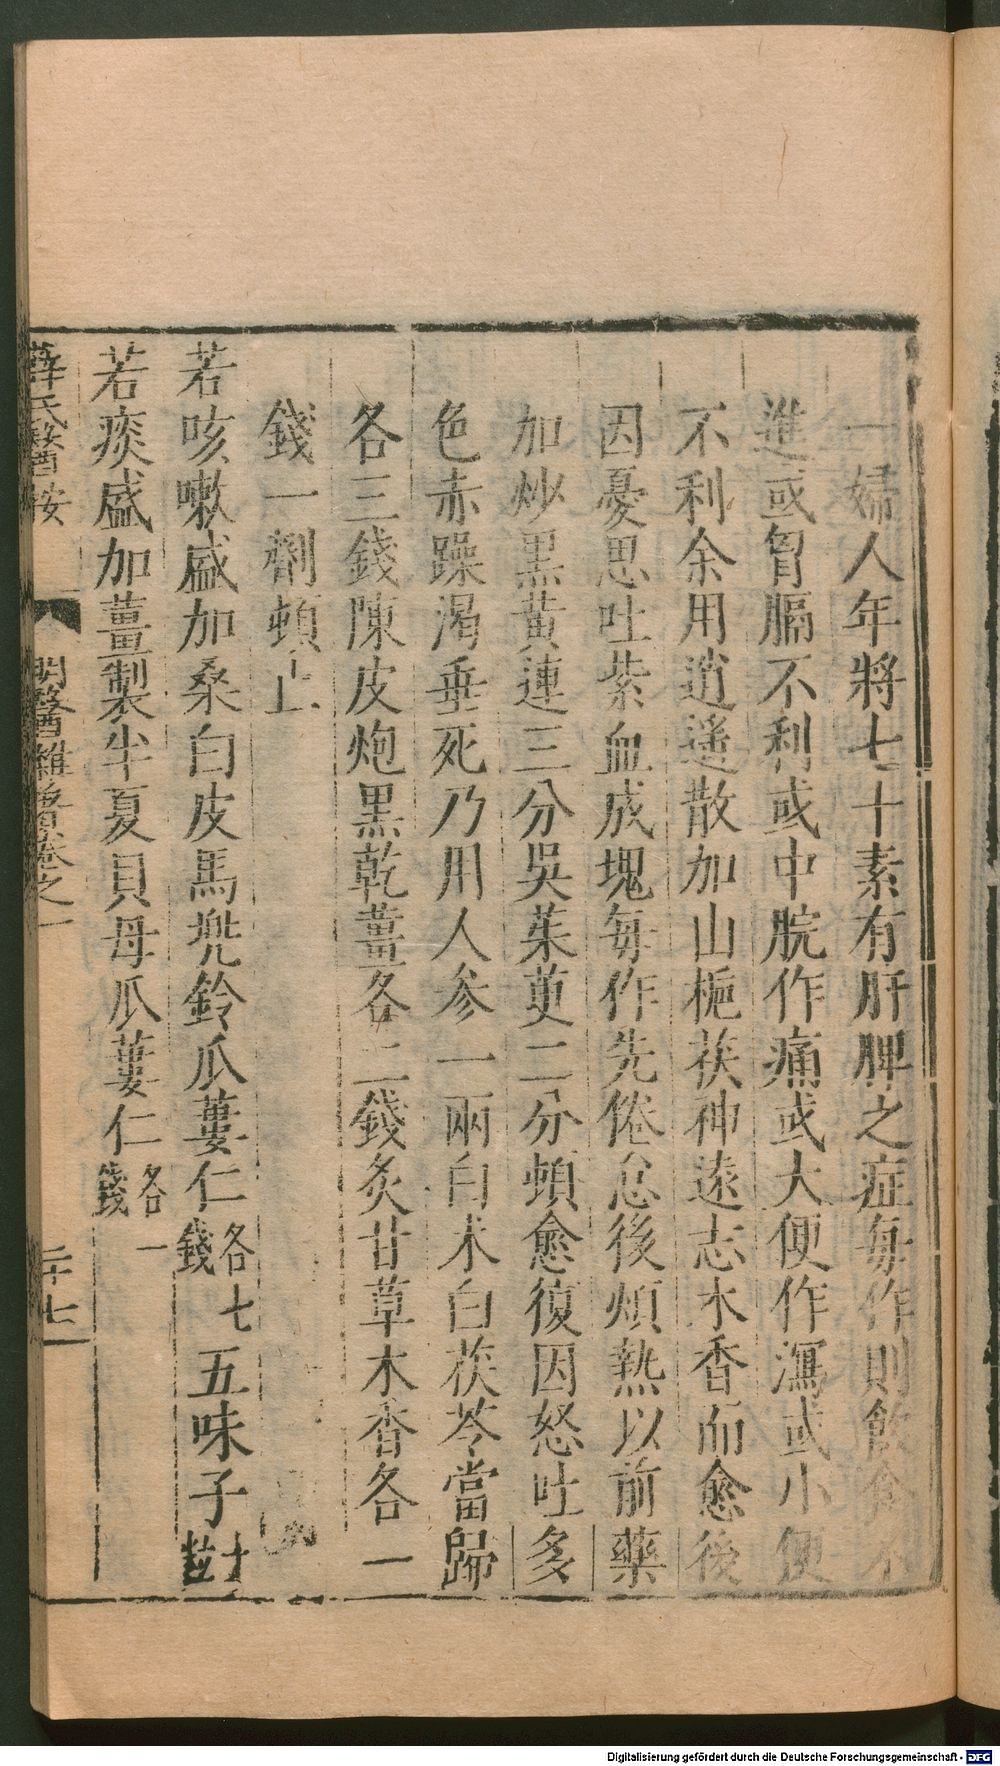 一婦人年將七十素有肝脾之症每作則飲食不
進或胷膈不利或中脘作痛或大便作瀉或小便
不利余用逍遥散加山梔茯神遠志木香而愈後
因憂思吐紫血成塊每作先倦怠後煩熱以前藥
加炒黑黄連三分吳茱萸二分頓愈復因怒吐多
色赤躁渴垂死乃用人参一兩白术白茯苓當歸
各三錢陳皮炮黑乾薑各二錢炙甘草木香各一
錢一劑頓止
若咳嗽盛加桑白皮馬兜鈴瓜蔞仁各七錢五味子十粒
若痰盛加薑製半夏貝母瓜蔞仁各一錢
薛氏醫按 明醫雜著卷之一 二十七
Digitalisierung gefördert durch die Deutsche Forschungsgemeinschaft - DFG